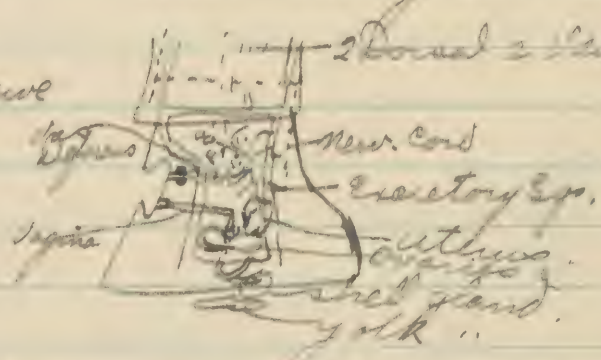 2 Dorsal &
Nerv. Cord
Excretory Sys.
Vagina
Uterus.
Ovaries
Shell gland
yolk "